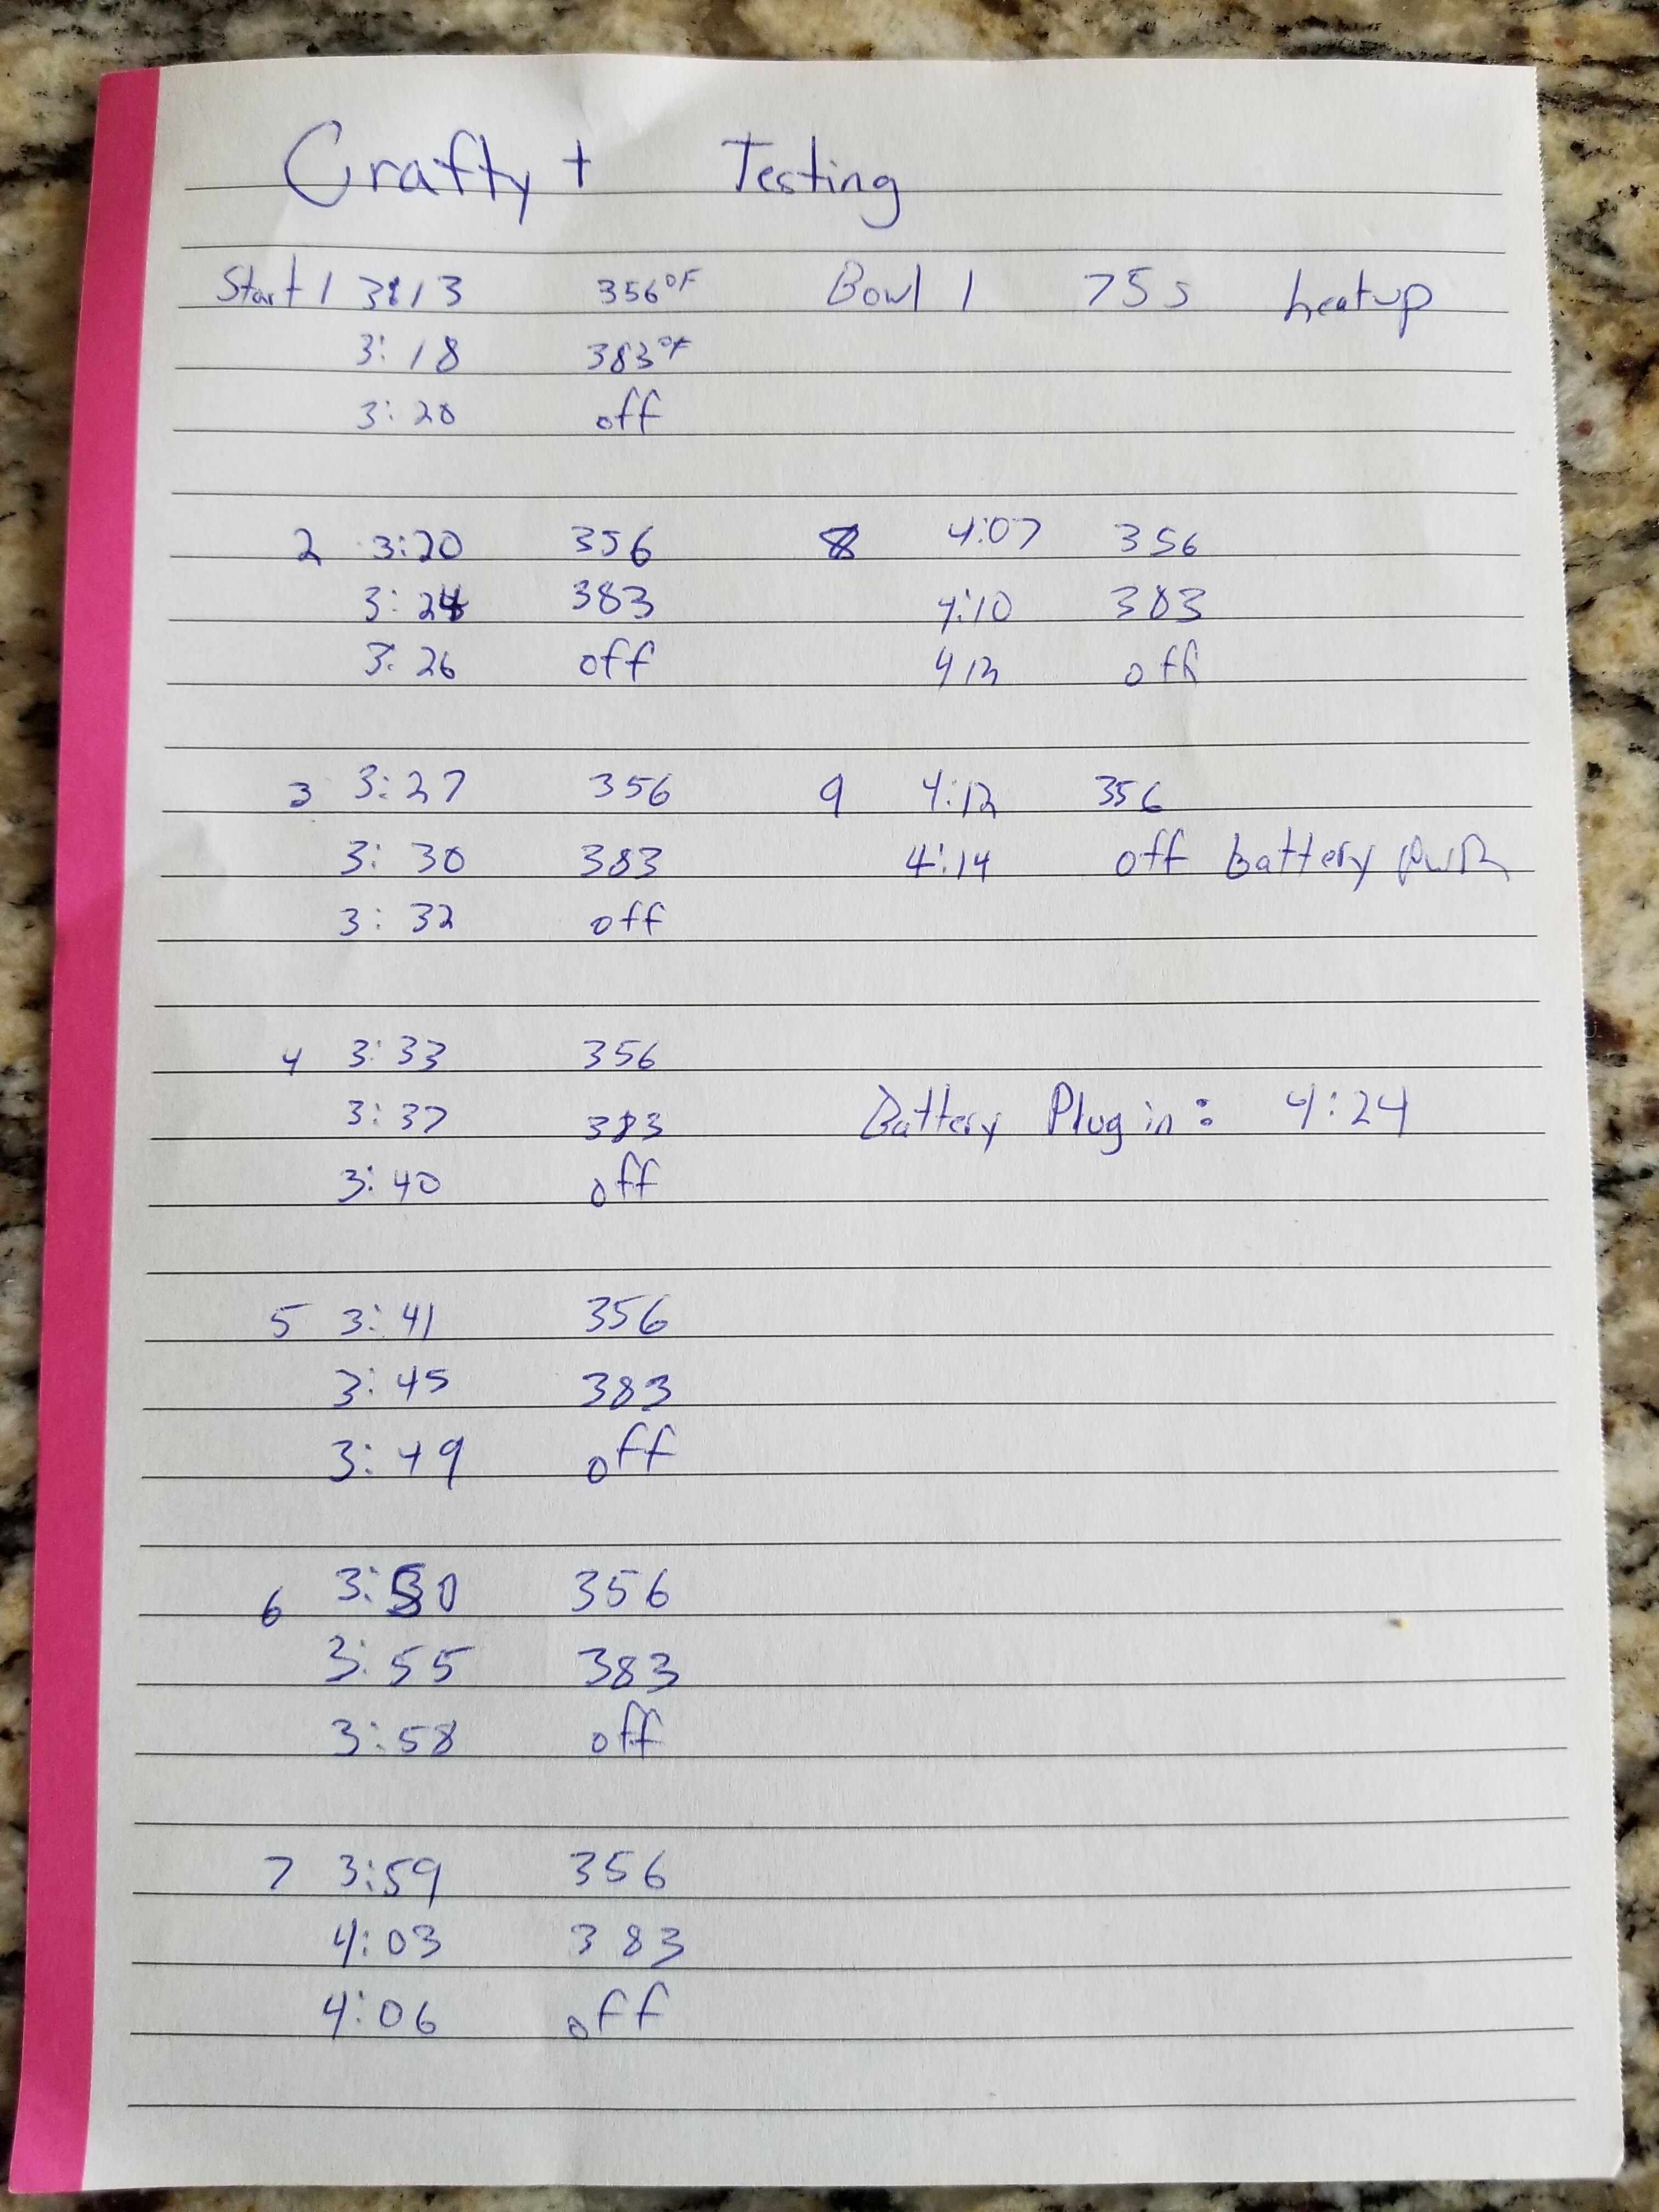 Crafty + Testing
Start 1 3:13 356°F Bowl 1 75s heatup
3:18 383°F
3:20 off
2 3:20 356
3:24 383
3:26 off
3 3:27 356
3:30 383
3:32 off
4 3:33 356
3:37 383
3:40 off
5 3:41 356
3:45 383
3:49 off
6 3:50 356
3:55 383
3:58 off
7 3:59 356
4:03 383
4:06 off
8 4:07 356
4:10 383
4 12 off
9 4:12 356
4:14 off battery
Battery Plug in: 4:24